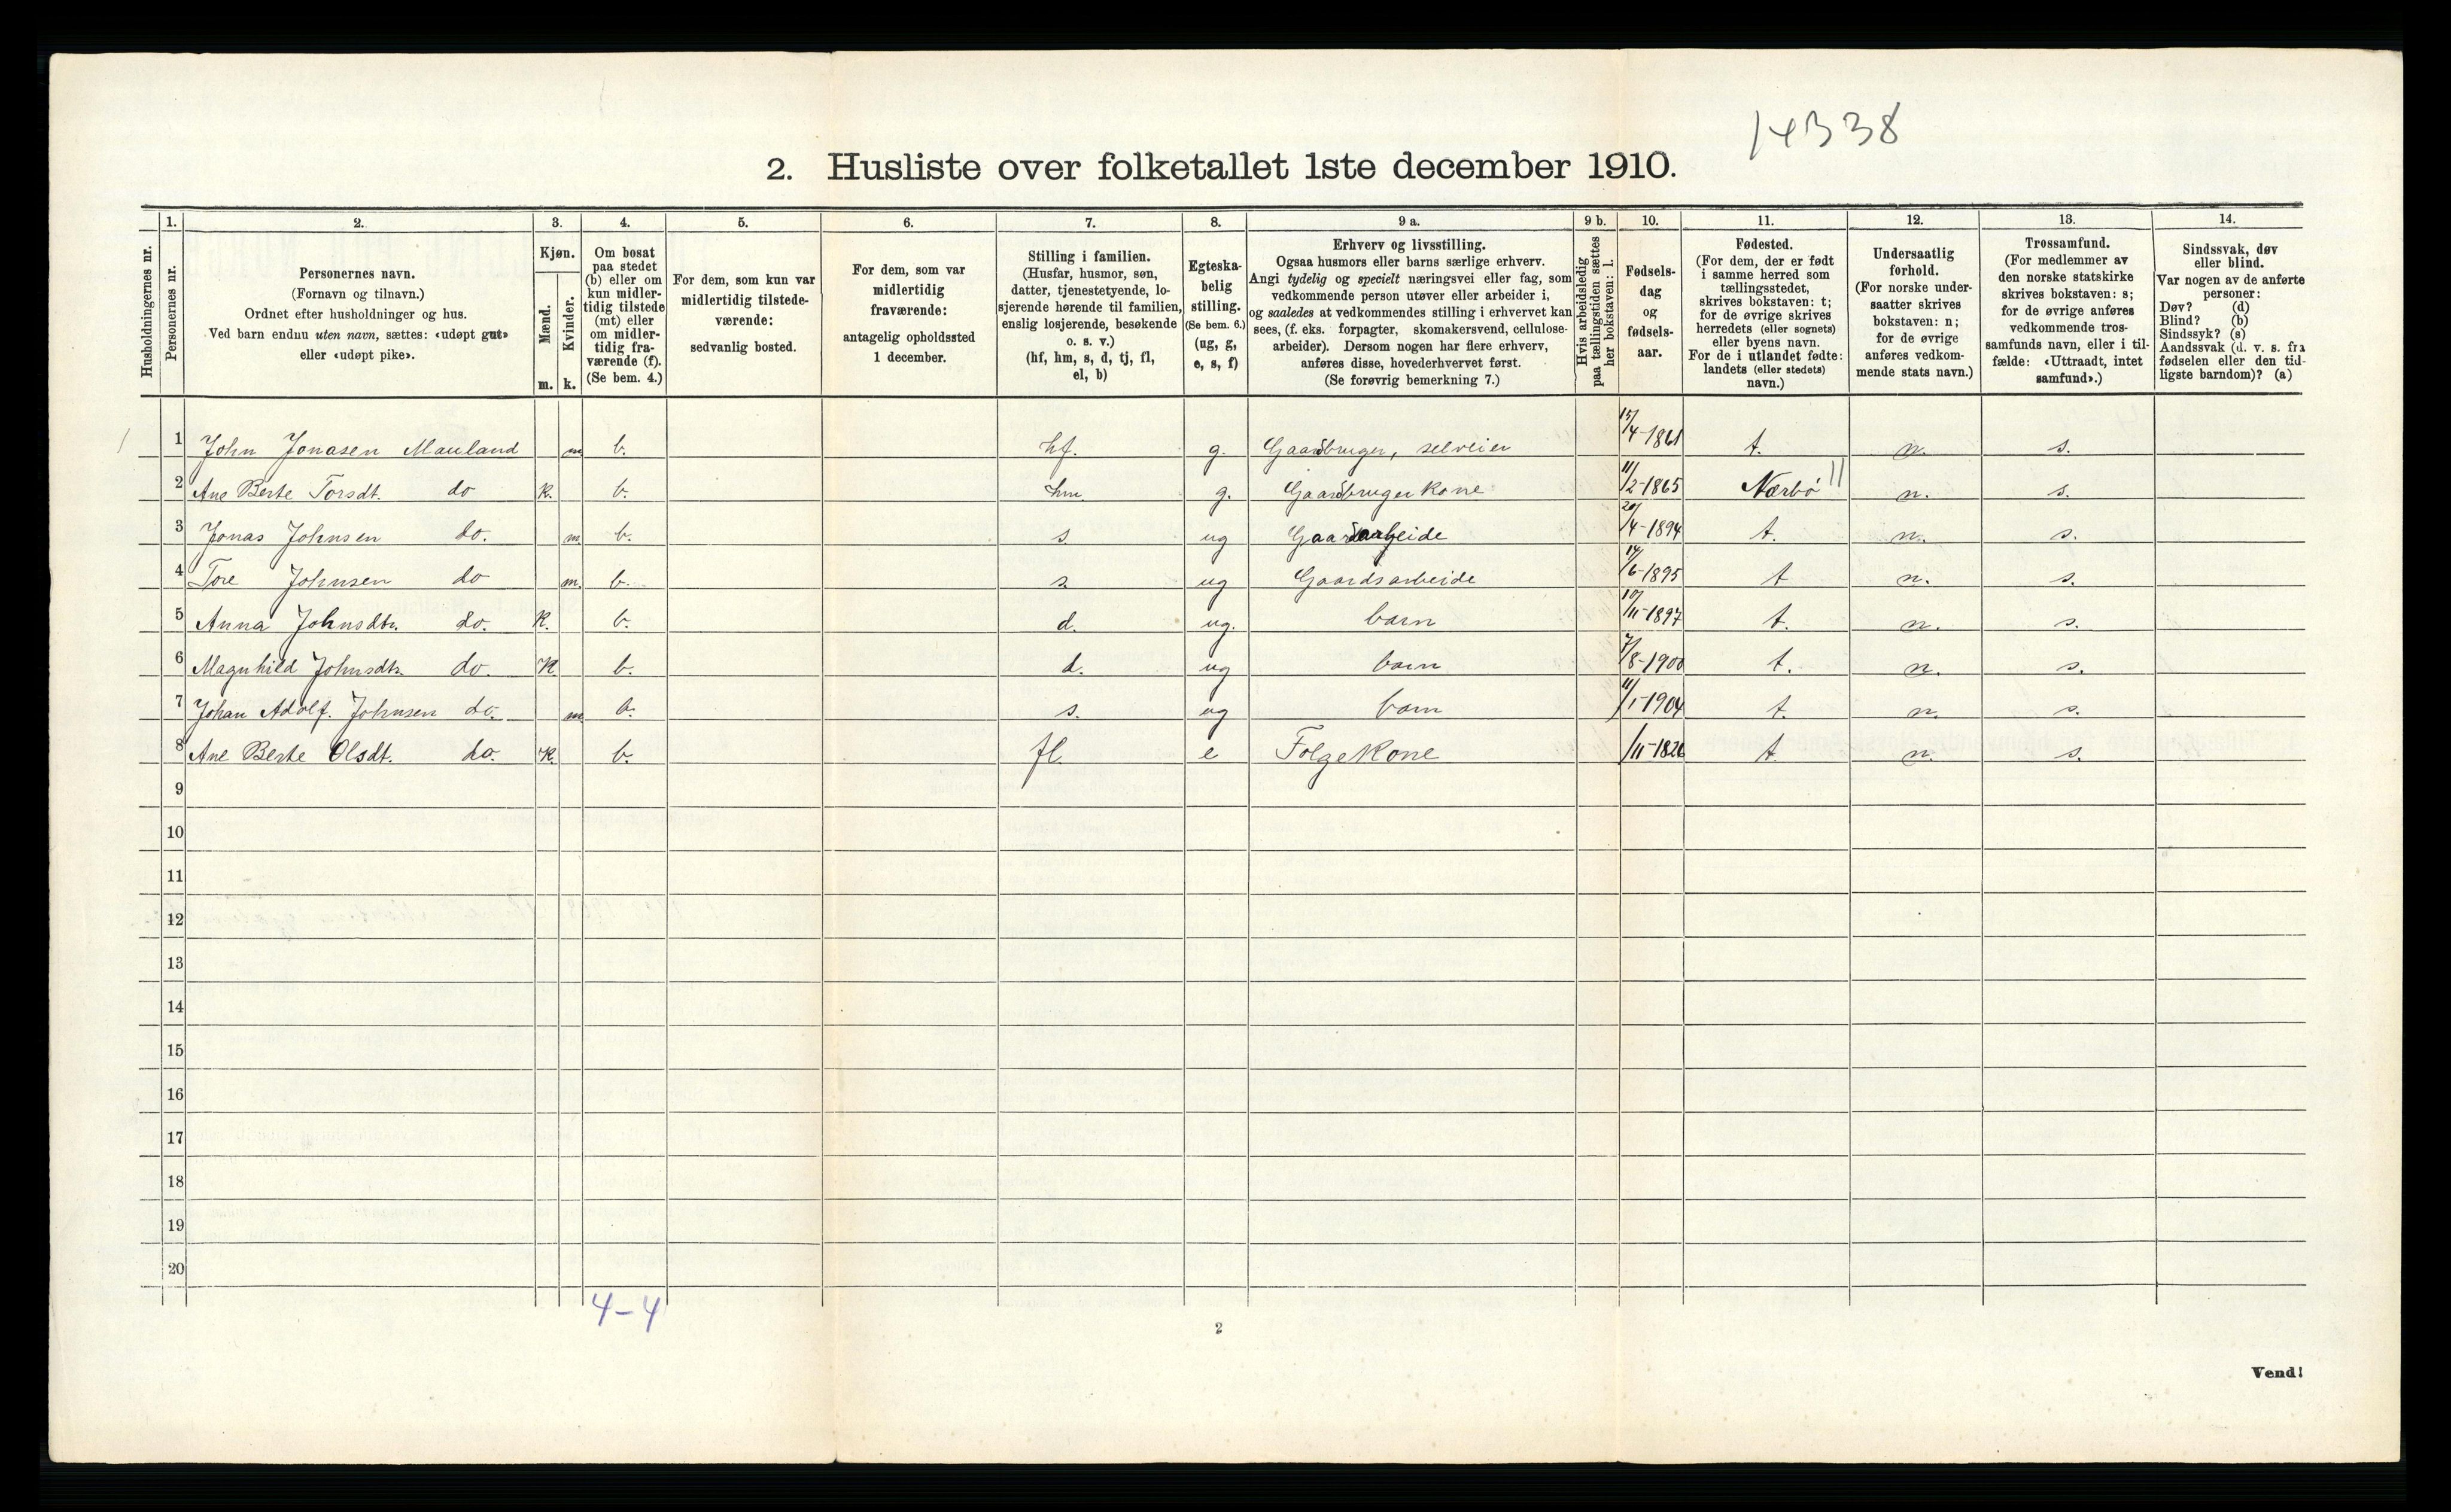 14338
2. Husliste over folketallet 1ste december 1910.
1. 2. 3. 4. 5. 6. 7. 8. 9 a. 9 b. 10. 11. 12. 13. 14.
Husholdningernes nr.
Personernes nr.
Personernes navn.
(Fornavn og tilnavn.)
Ordnet efter husholdninger og hus.
Ved barn endnu uten navn, sættes: «udøpt gut»
eller «udøpt pike».
Kjøn.
Mænd.
Kvinder.
m. k.
Om bosat
paa stedet
(b) eller om
kun midler-
tidig tilstede
(mt) eller
om midler-
tidig fra-
værende (f).
(Se bem. 4.)
For dem, som kun var
midlertidig tilstede-
værende:
sedvanlig bosted.
For dem, som var
midlertidig
fraværende:
antagelig opholdssted
1 december.
Stilling i familien.
(Husfar, husmor, søn,
datter, tjenestetyende, lo-
sjerende hørende til familien,
enslig losjerende, besøkende
o. s. v.)
(hf, hm, s, d, tj, fl,
el, b)
Egteska-
belig
stilling.
(Se bem. 6.)
(ug, g,
e, s, f)
Erhverv og livsstilling.
Ogsaa husmors eller barns særlige erhverv.
Angi tydelig og specielt næringsvei eller fag, som
vedkommende person utøver eller arbeider i,
og saaledes at vedkommendes stilling i erhvervet kan
sees, (f. eks. forpagter, skomakersvend, cellulose-
arbeider). Dersom nogen har flere erhverv,
anføres disse, hovederhvervet først.
(Se forøvrig bemerkning 7.)
Hvis arbeidsledig
paa tællingstiden sættes
her bokstaven: l.
Fødsels-
dag
og
fødsels-
aar.
Fødested.
(For dem, der er født
i samme herred som
tællingsstedet,
skrives bokstaven: t;
for de øvrige skrives
herredets (eller sognets)
eller byens navn.
For de i utlandet fødte:
landets (eller stedets)
navn.)
Undersaatlig
forhold.
(For norske under-
saatter skrives
bokstaven: n;
for de øvrige
anføres vedkom-
mende stats navn.)
Trossamfund.
(For medlemmer av
den norske statskirke
skrives bokstaven: s;
for de øvrige anføres
vedkommende tros-
samfunds navn, eller i til-
fælde: «Uttraadt, intet
samfund».)
Sindssvak, døv
eller blind.
Var nogen av de anførte
personer:
Døv? (d)
Blind? (b)
Sindssyk? (s)
Aandssvak (d. v. s. fra
fødselen eller den tid-
ligste barndom)? (a)
1 John Jonasen Mauland m b. hf. g. Gaardbruger, selveier 15/4-1861 t. n. s.
2 Ane Berte Torsdt. do k. b. hm g. Gaardbruger kone 11/2-1865 Nærbø 11 n. s.
3 Jonas Johnsen do. m b. s. ug Gaardsarbeide 20/4-1894 t. n. s.
4 Tore Johnsen do m. b. s. ug Gaardsarbeide 14/6-1895 t n. s.
5 Anna Johnsdtr. do. k. b. d. ug. barn 10/11-1897 t. n. s.
6 Magnhild Johnsdtr. do. k. b. d. ug barn 7/8-1900 t. n. s.
7 Johan Adolf. Johnsen do. m b. s. ug barn 11/1-1904 t. n. s.
8 Ane Berte Olsdt. do. k. b. fl. e Folgekone /11-1826 t. n. s.
9
10
11
12
13
14
15
16
17
18
19
20
4-4
2
Vend!